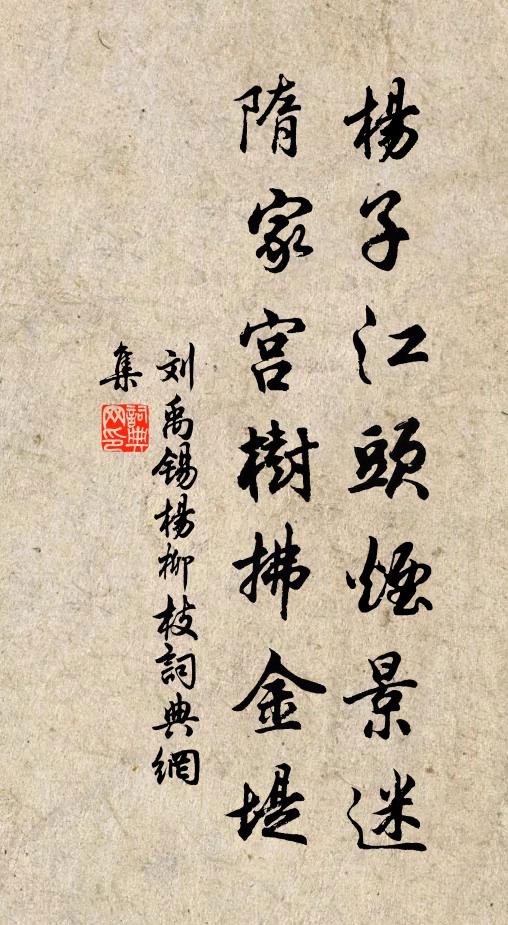 楊子江頭煙景迷
隋家宮樹拂金堤
刘禹锡楊柳枝詞典網
集
詞典網印